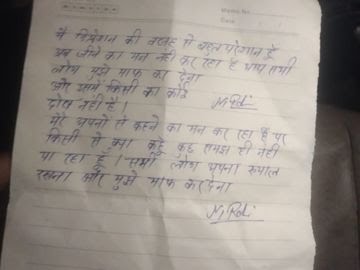 Memo No.
Date
मैं डिप्रेशन की वजह से बहुत परेशान हूँ
अब जीने का मन नहीं कर रहा है आप सभी
लोग मुझे माफ कर देना
और इसमें किसी का कोई
दोष नहीं है।
मेरे अपनो से कहने का मन कर रहा है पर
किसी से क्या कहूँ कुछ समझ ही नहीं
पा रहा हूँ। सभी लोग अपना ख्याल
रखना और मुझे माफ कर देना